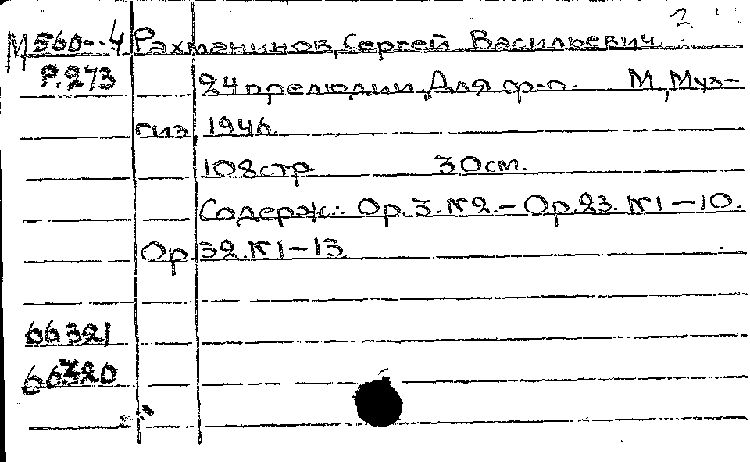 2
М 560-4 Рахманинов, Сергей Васильевич.
Р.273 24 прелюдии. Для ф-п. М, Муз-
гиз, 1946.
108 стр 30 см.
Содерж.: Op. 3. №2. - Op. 23. №1-10.
Op. 32. №1-13
66321
66320